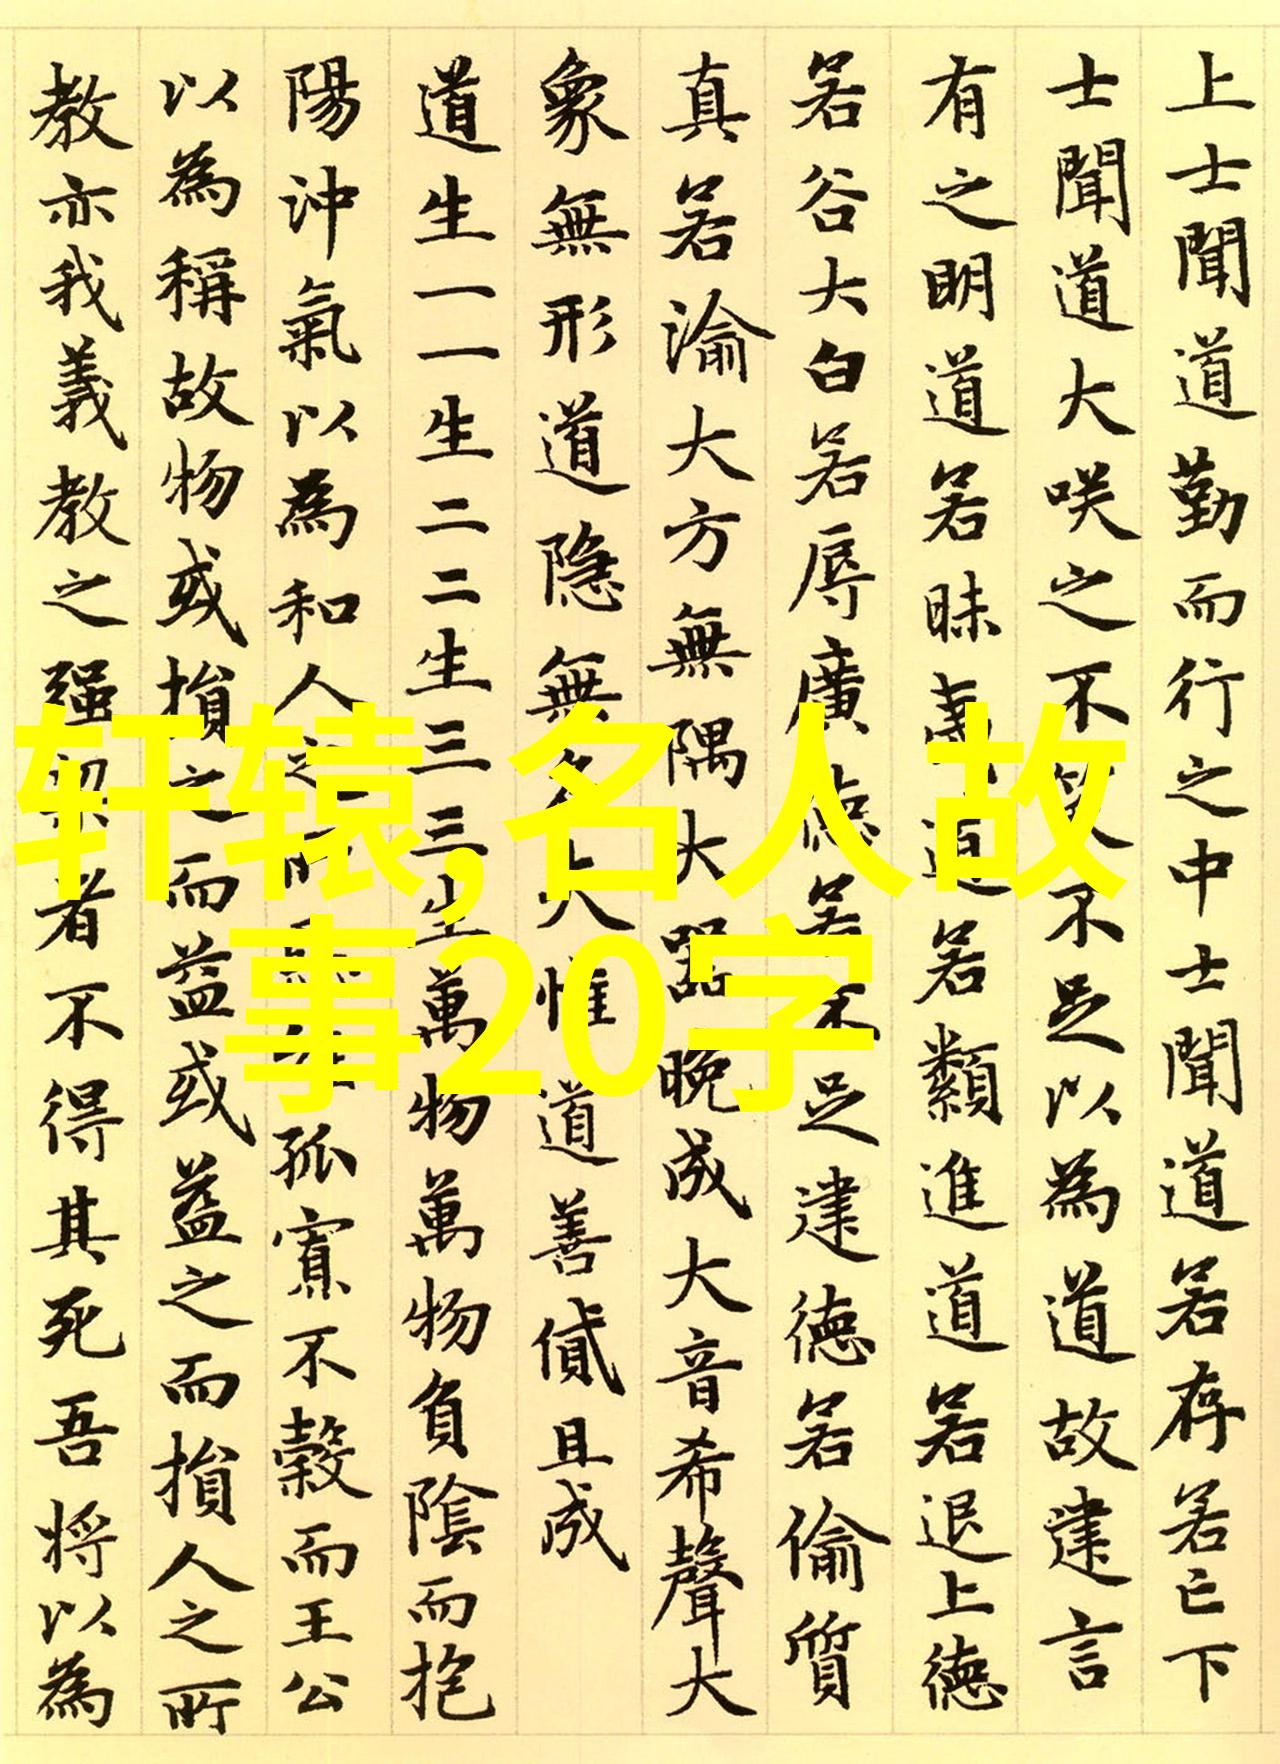 上士聞道勤而行之中士聞道若存若亡下
士聞道大咲之不笑不足以為道故建言
有之明道若昧夷道若纇進道若退上德
若谷大白若辱廣德若不足建德若偷質
真若渝大方無隅大器晚成大音希聲大
象無形道隐無名夫惟道善貸且成
道生一一生二二生三三生萬物萬物負陰而抱
陽沖氣以為和人之所惡孤寡不穀而王公
以為稱故物或損之而益或益之而損人之所
教亦我義教之强梁者不得其死吾将以為
轩辕,名人故
事20字